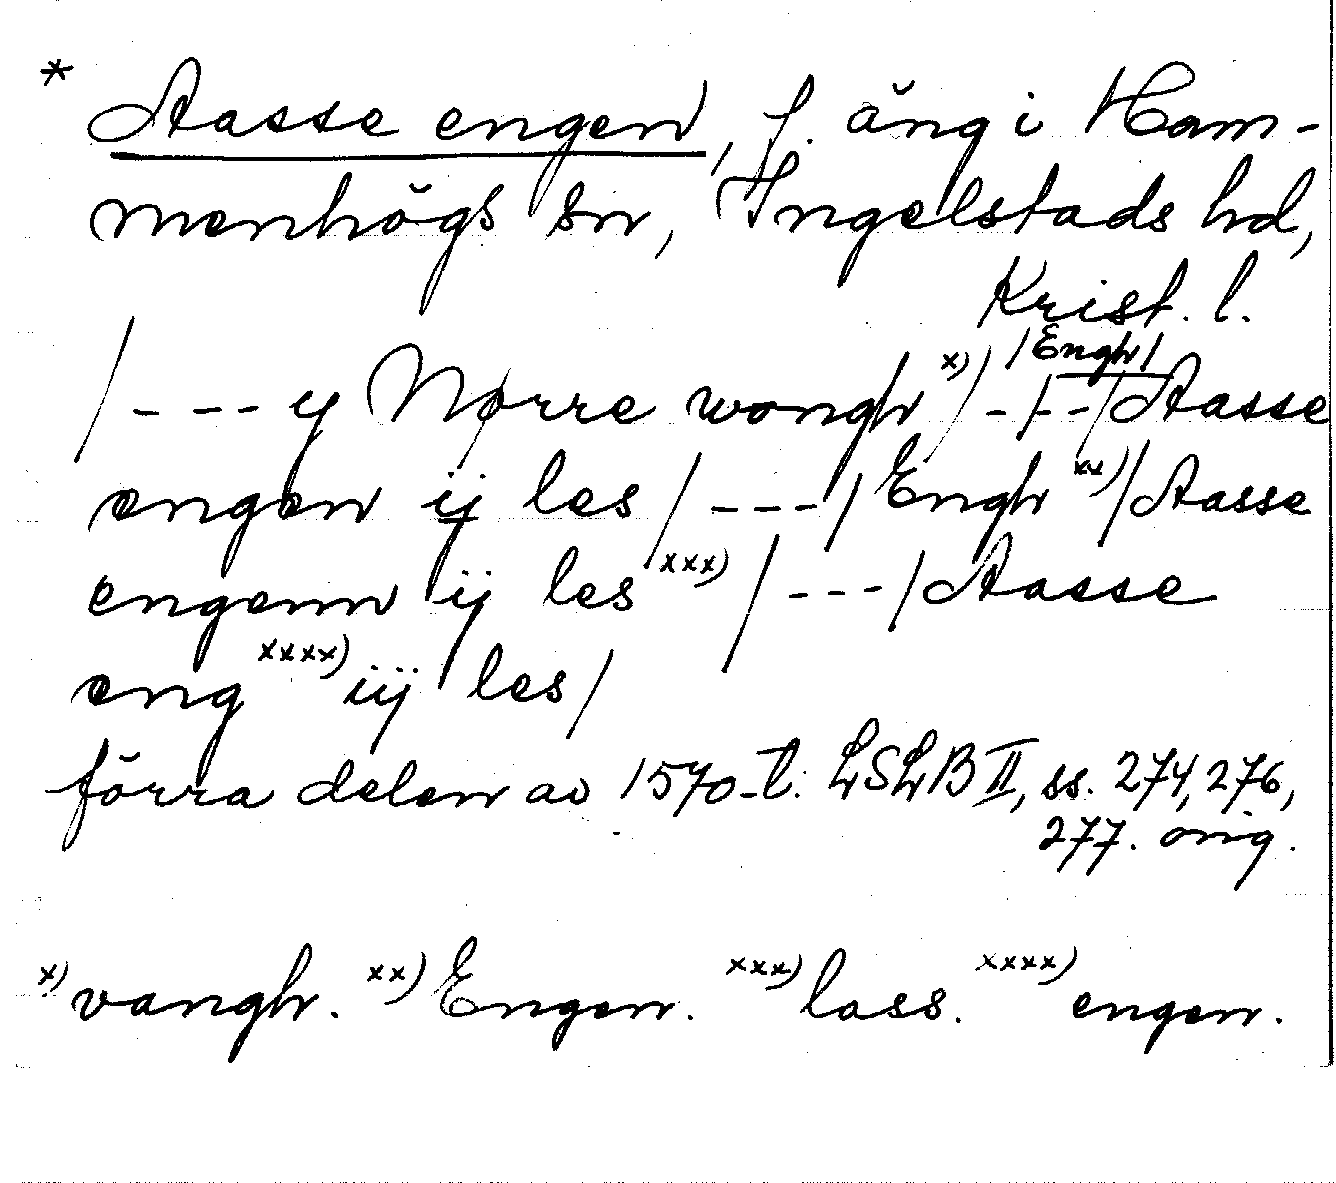 * Aasse engen, f. äng i Ham-
menhögs sn, Ingelstads hd,
Krist. l.
/ - - - y Nørre wongh x) / - - - / /Engh/ Aasse
engen ij les / - - - / Engh xx) / Aasse
engenn ij les xxx) / - - - / Aasse
eng xxxx) iij les /
förra delen av 1570-t. LSLB II, ss. 274, 276,
277. orig.
x) vangh. xx) Engen. xxx) lass. xxxx) engen.